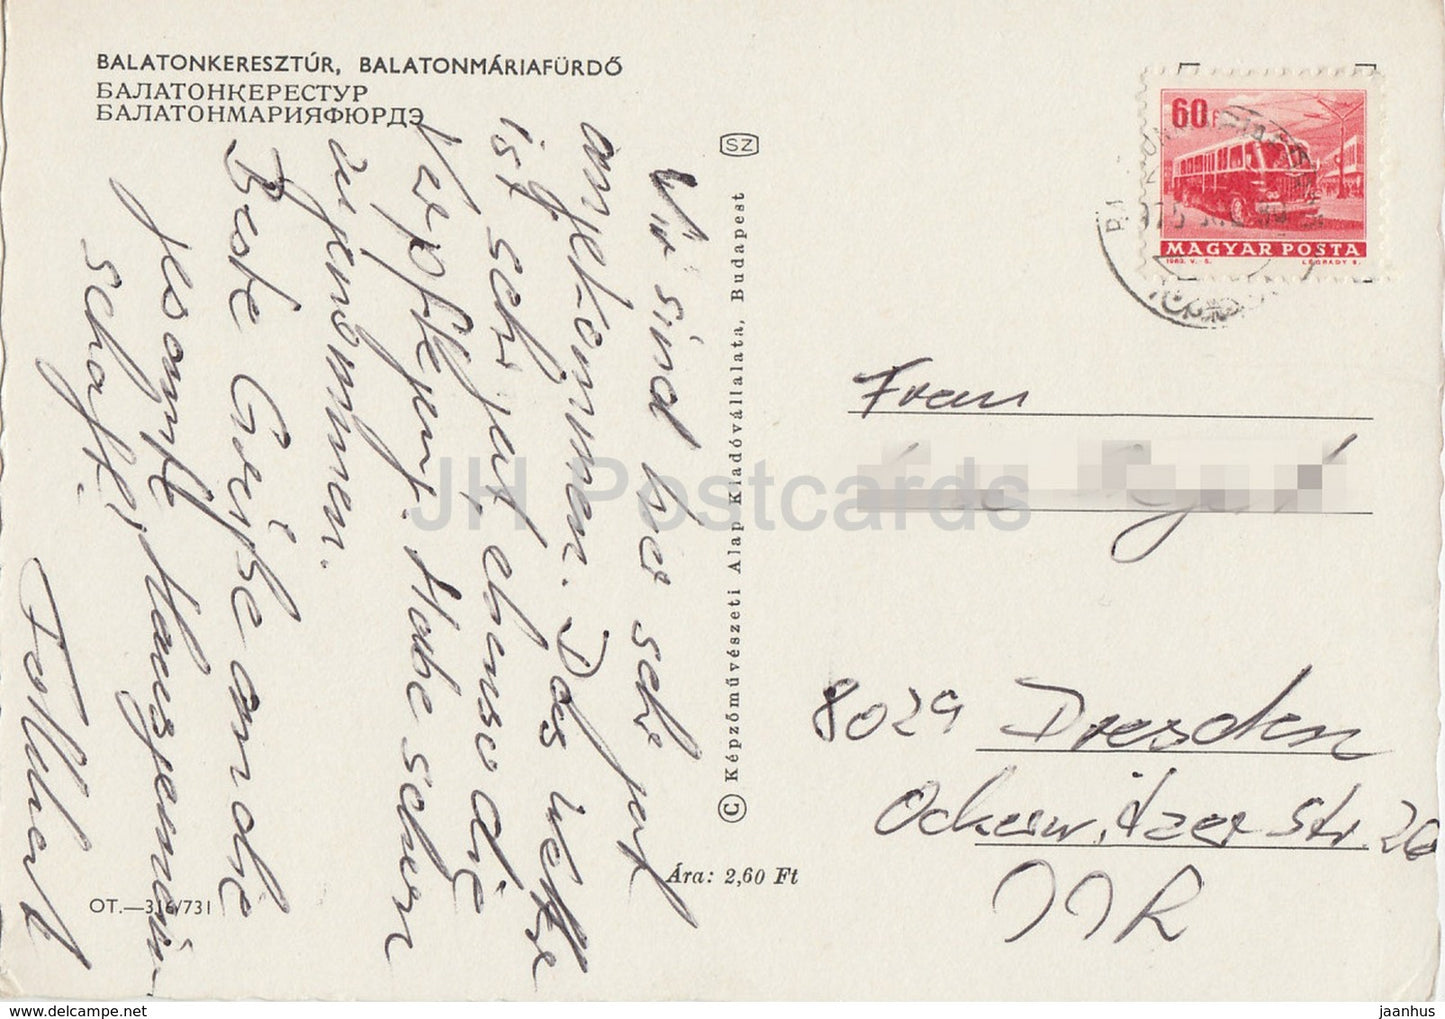 BALATONKERESZTÚR, BALATONMÁRIAFÜRDŐ
БАЛАТОНКЕРЕСТУР
БАЛАТОНМАРИЯФЮРДЭ
Wir sind hier sehr gut
angekommen. Das Wetter
ist sehr gut, ebenso die
Verpflegung. Habe schon
zugenommen.
Beste Grüße an die
gesamte Hausgemein-
schaft!
SZ
© Képzőművészeti Alap Kiadóvállalata, Budapest
Ára: 2,60 Ft
OT.—316/731
60f
MAGYAR POSTA
1963. V.-S. LÉGRÁDY S.
Frau
8029 Dresden
Ockerwitzer Str. 20
DDR
JH Postcards
delcampe.net
jaanhus